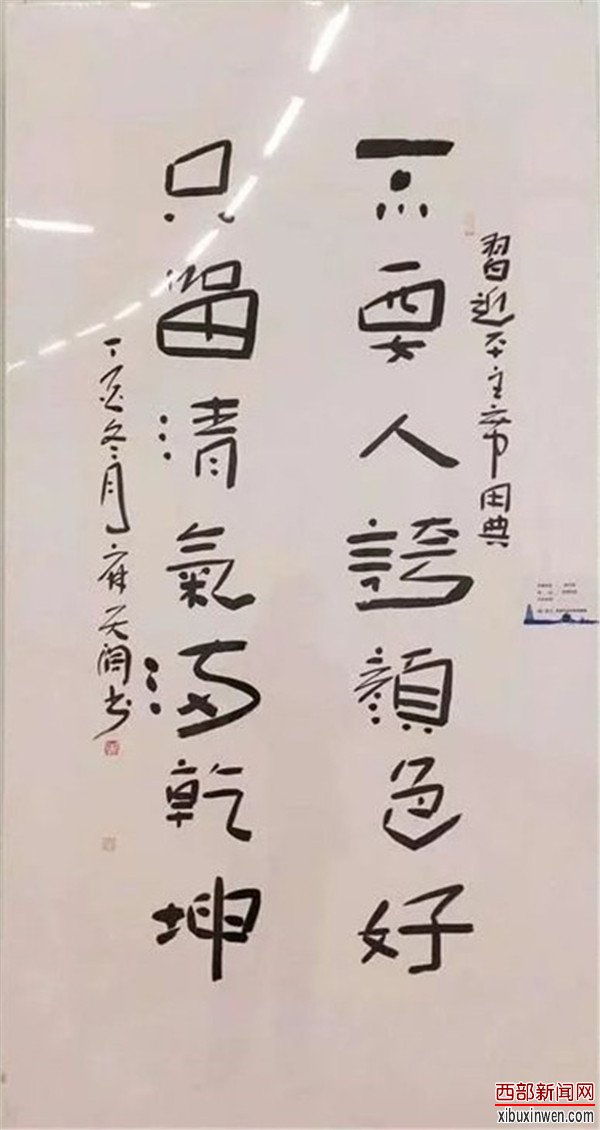 習近平主席用典
不要人誇顔色好
只留清氣滿乾坤
丁亥冬月麻天阔书
西部新闻网
xibuxinwen.com